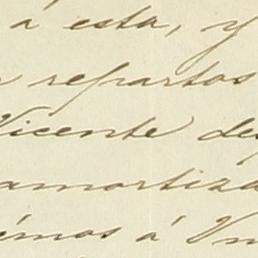 á esta, y
repartos
Vicente de
amortiza
mos á Vm